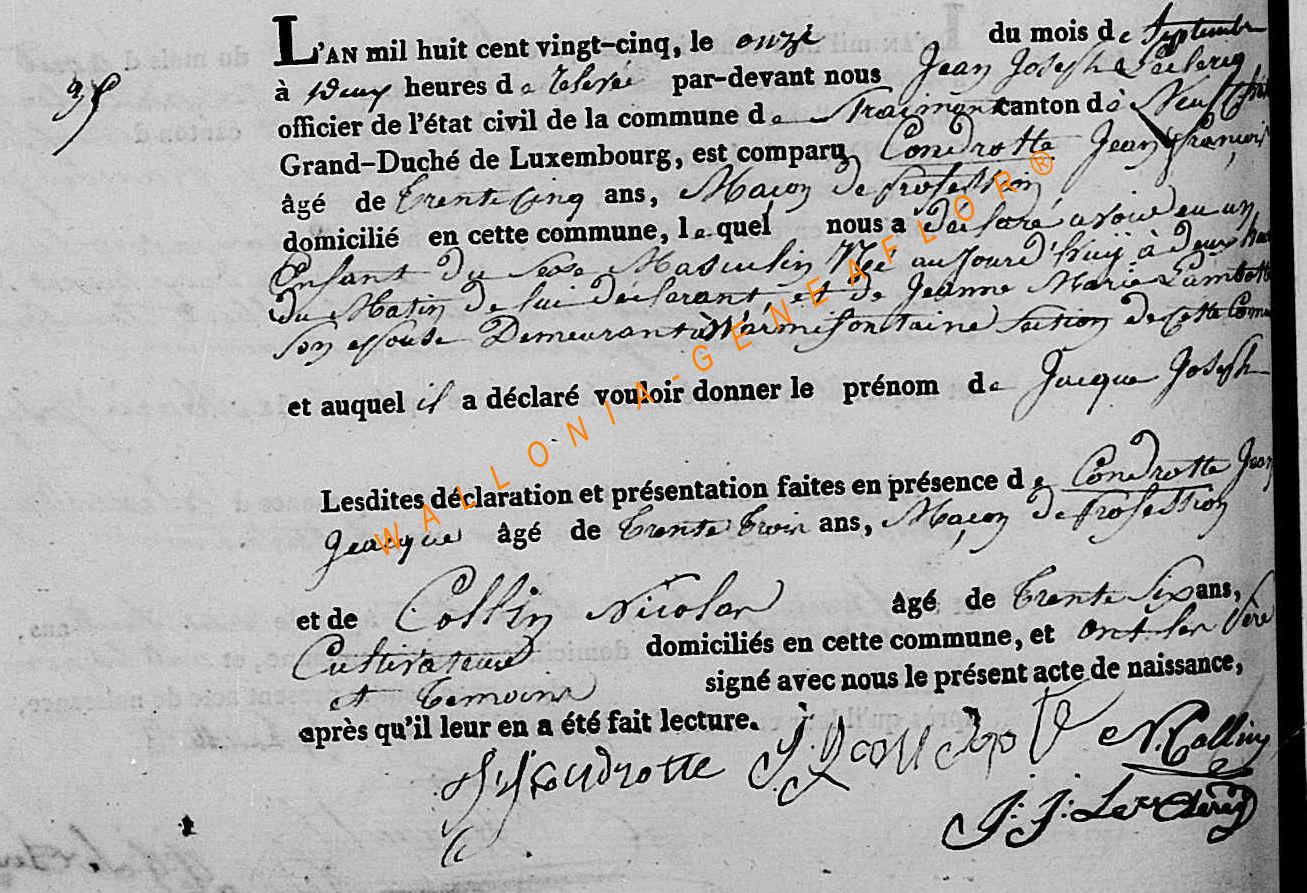 35
L'AN mil huit cent vingt-cinq, le onze du mois de Septembre
à Deux heures de relevée par-devant nous Jean Joseph Leclercq
officier de l'état civil de la commune de Straimont canton de Neufchât
Grand-Duché de Luxembourg, est comparu Condrotte Jean François
âgé de trente cinq ans, Maçon de profession
domicilié en cette commune, lequel nous a déclaré avoir eu un
Enfant du sexe Masculin Né aujourd'huÿ à deux heu
du Matin de lui déclarant, et de Jeanne Marie Lambott
son epouse Demeurant à Warmifontaine section de cette Comu
et auquel il a déclaré vouloir donner le prénom de Jacque Joseph
Lesdites déclaration et présentation faites en présence de Condrotte Jean
Jacque âgé de trente trois ans, Maçon de profession
et de Collin Nicolas âgé de trente six ans,
Cultivateur domiciliés en cette commune, et ont les Père
et temoins signé avec nous le présent acte de naissance,
après qu'il leur en a été fait lecture.
Condrotte N. Collin
J: J: Leclercq
WALLONIA-GENEAFLOR®